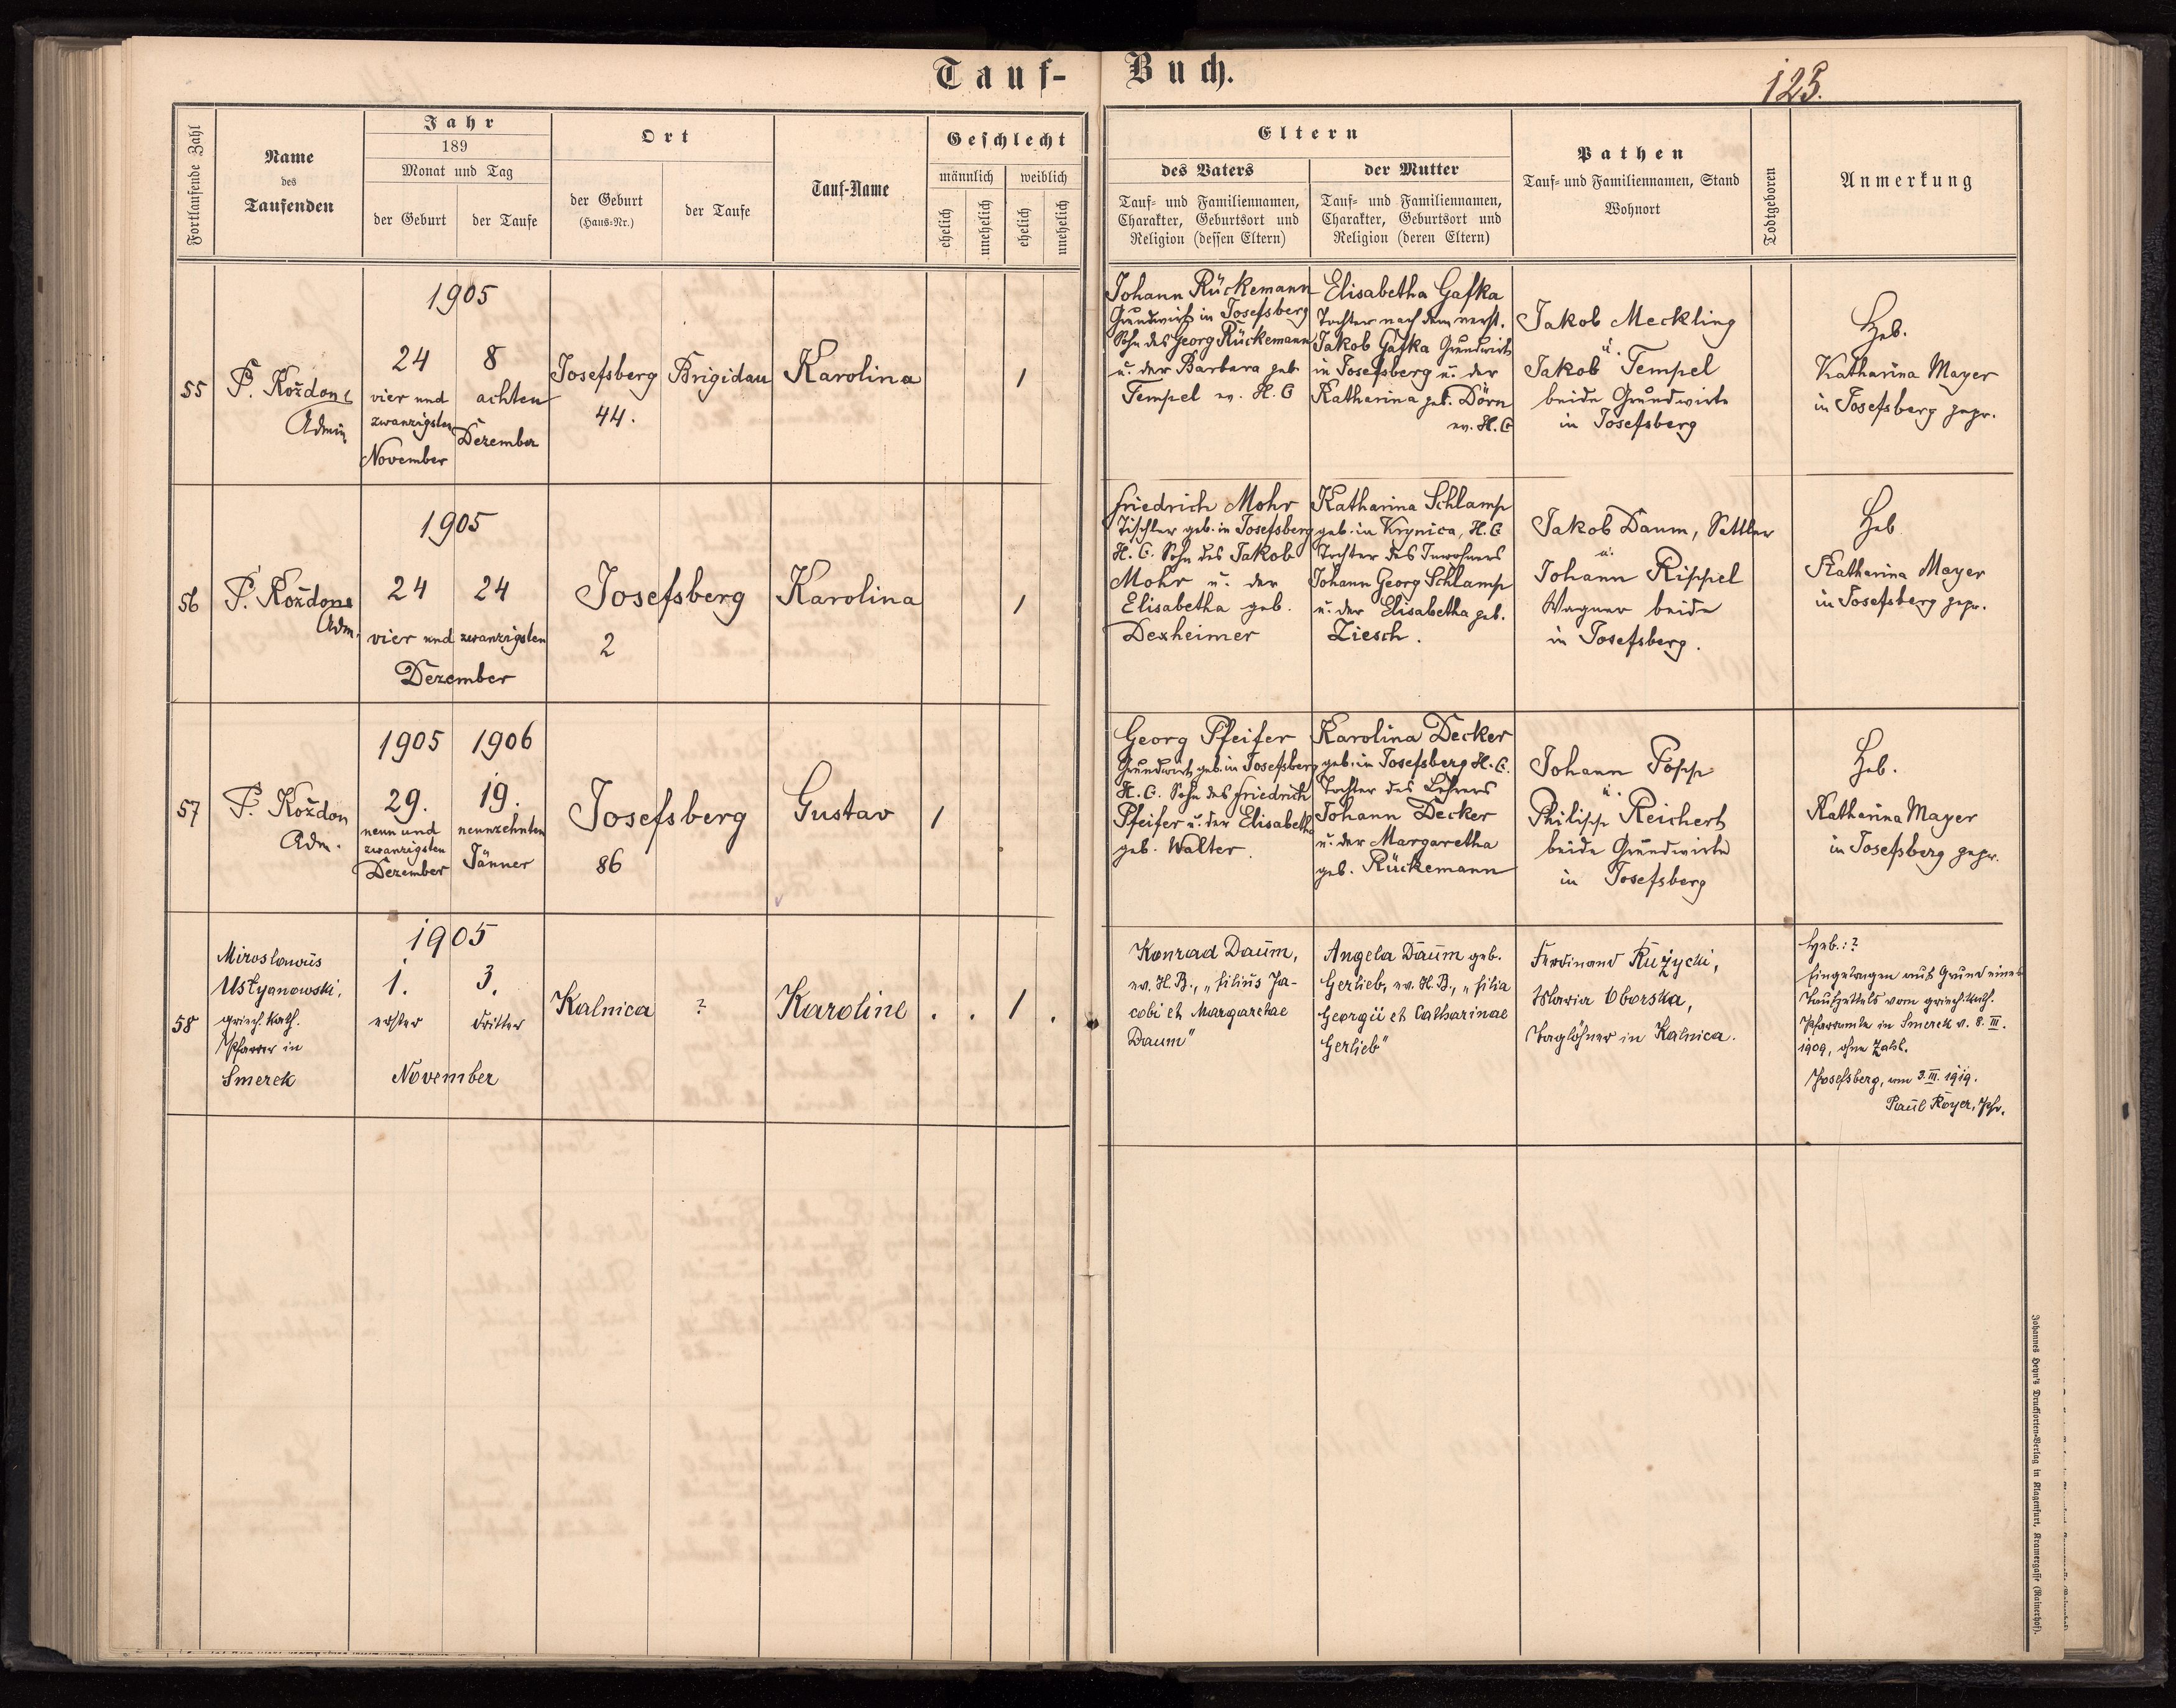 Tauf- Buch.
125.
Fortlaufende Zahl
Name
des
Taufenden
Jahr
189
Monat und Tag
der Geburt
der Taufe
Ort
der Geburt
(Haus-Nr.)
der Taufe
Tauf-Name
Geschlecht
männlich
weiblich
ehelich
unehelich
ehelich
unehelich
Eltern
des Vaters
Tauf- und Familiennamen,
Charakter, Geburtsort und
Religion (dessen Eltern)
der Mutter
Tauf- und Familiennamen,
Charakter, Geburtsort und
Religion (deren Eltern)
Pathen
Tauf- und Familiennamen, Stand
Wohnort
Todtgeboren
Anmerkung
55
P. Kożdon
Admin
1905
24
vier und
zwanzigsten
November
8
achten
Dezember
Josefsberg
44.
Brigidau
Karolina
1
Johann Rückemann
Grundwirt in Josefsberg
Sohn des Georg Rückemann
u. der Barbara geb
Tempel ev. H. C
Elisabetha Gafka
Tochter nach dem verst.
Jakob Gafka Grundwirt
in Josefsberg u. der
Katharina geb. Dörn
ev. H. C
Jakob Meckling
u.
Jakob Tempel
beide Grundwirte
in Josefsberg
Heb.
Katharina Mayer
in Josefsberg gepr.
56
P. Kożdon
Adm.
1905
24 24
vier und zwanzigsten
Dezember
Josefsberg
2
Karolina
1
Friedrich Mohr
Tischler geb. in Josefsberg
H. C. Sohn des Jakob
Mohr u. der
Elisabetha geb.
Dexheimer
Katharina Schlamp
geb. in Krynica, H. C
Tochter des Inwohners
Johann Georg Schlamp
u. der Elisabetha geb.
Ziesch.
Jakob Daum, Sattler
u.
Johann Rippel
Wagner beide
in Josefsberg.
Heb
Katharina Mayer
in Josefsberg gepr.
57
P. Kożdon
Adm.
1905
29.
neun und
zwanzigsten
Dezember
1906
19.
neunzehnten
Jänner
Josefsberg
86
Gustav
1
Georg Pfeifer
Grundwirt geb. in Josefsberg
H. C. Sohn des Friedrich
Pfeifer u. der Elisabetha
geb. Walter
Karolina Decker
geb. in Josefsberg H. C.
Tochter des Lehrers
Johann Decker
u. der Margaretha
geb. Rückemann
Johann Popp
u.
Philipp Reichert
beide Grundwirte
in Josefsberg
Heb.
Katharina Mayer
in Josefsberg gepr.
58
Miroslawus
Ustyanowski,
griech. kath.
Pfarrer in
Smerek
1905
1.
erster
3.
dritter
November
Kalnica
?
Karoline
. . 1 .
Konrad Daum,
ev. H. B., „filius Ja-
cobi et Margarethae
Daum"
Angela Daum geb.
Gerlieb, ev. H. B., „filia
Georgii et Catharinae
Gerlieb"
Ferdinand Rużycki,
Maria Oborska,
Taglöhner in Kalnica.
Heb.: ?
Eingetragen auf Grund eines
Taufzettels vom griech. kath.
Pfarramte in Smerek v. 8. III.
1909, ohne Zahl.
Josefsberg, am 3. III. 1919.
Paul Royer, Pfr.
Johannes Heyn's Drucksorten-Verlag in Klagenfurt, Kramergasse (Rainerhof).